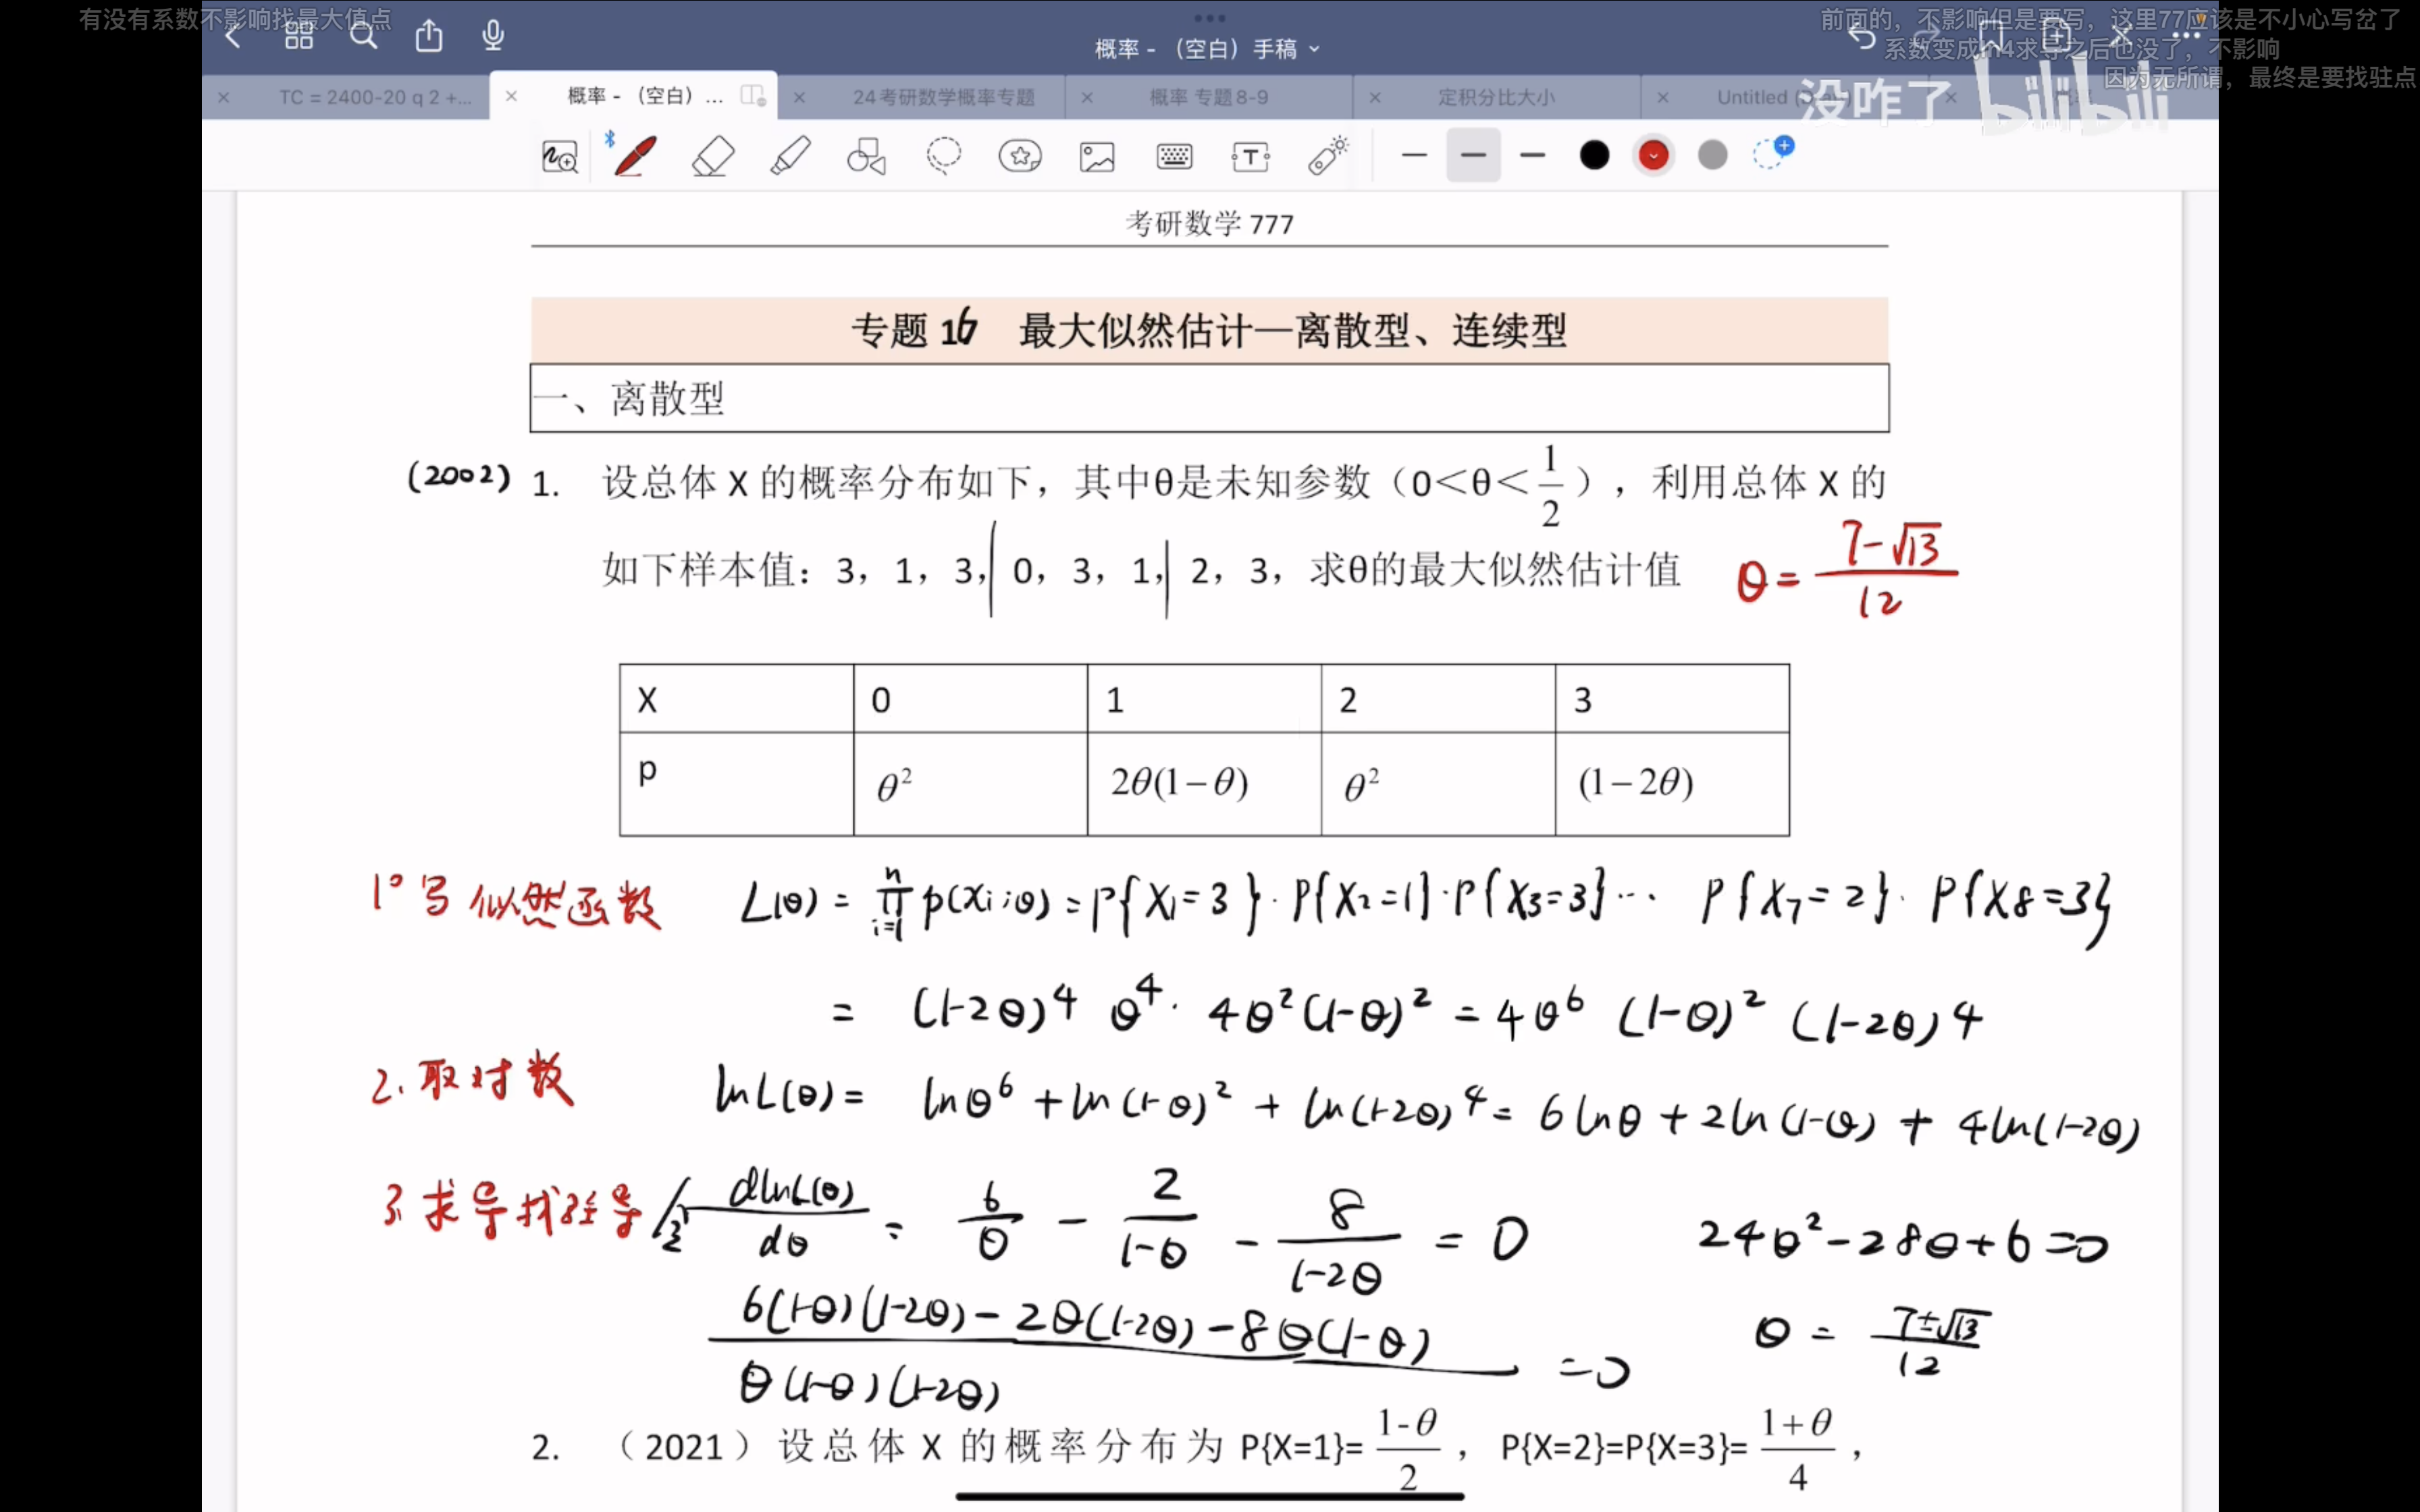 有没有系数不影响找最大值点
前面的，不影响但是要写，这里77应该是不小心写岔了
系数变成ln4求导之后也没了，不影响
因为无所谓，最终是要找驻点
概率 - （空白）手稿
没咋了 bilibili
TC = 2400-20 q 2 +...
概率 - （空白） ...
24考研数学概率专题
概率 专题8-9
定积分比大小
考研数学 777
专题 16 最大似然估计—离散型、连续型
一、离散型
(2002) 1. 设总体 X 的概率分布如下，其中θ是未知参数（0＜θ＜1/2），利用总体 X 的
如下样本值：3，1，3，0，3，1，2，3，求θ的最大似然估计值
θ = (7-√13)/12
X 0 1 2 3
p θ² 2θ(1−θ) θ² (1−2θ)
1° 写似然函数 L(θ) = ∏_{i=1}^{n} p(xi;θ) = P{X₁=3}·P{X₂=1}·P{X₃=3}··· P{X₇=2}·P{X8=3}
= (1-2θ)⁴ θ⁴· 4θ²(1-θ)² = 4θ⁶ (1-θ)² (1-2θ)⁴
2. 取对数 lnL(θ) = lnθ⁶ + ln(1-θ)² + ln(1-2θ)⁴ = 6lnθ + 2ln(1-θ) + 4ln(1-2θ)
3. 求导找驻导 dlnL(θ)/dθ = 6/θ - 2/(1-θ) - 8/(1-2θ) = 0 24θ²-28θ+6=0
(6(1-θ)(1-2θ)-2θ(1-2θ)-8θ(1-θ))/(θ(1-θ)(1-2θ)) =0 θ = (7±√13)/12
2. （2021）设总体 X 的概率分布为 P{X=1}= (1-θ)/2 ， P{X=2}=P{X=3}= (1+θ)/4 ，